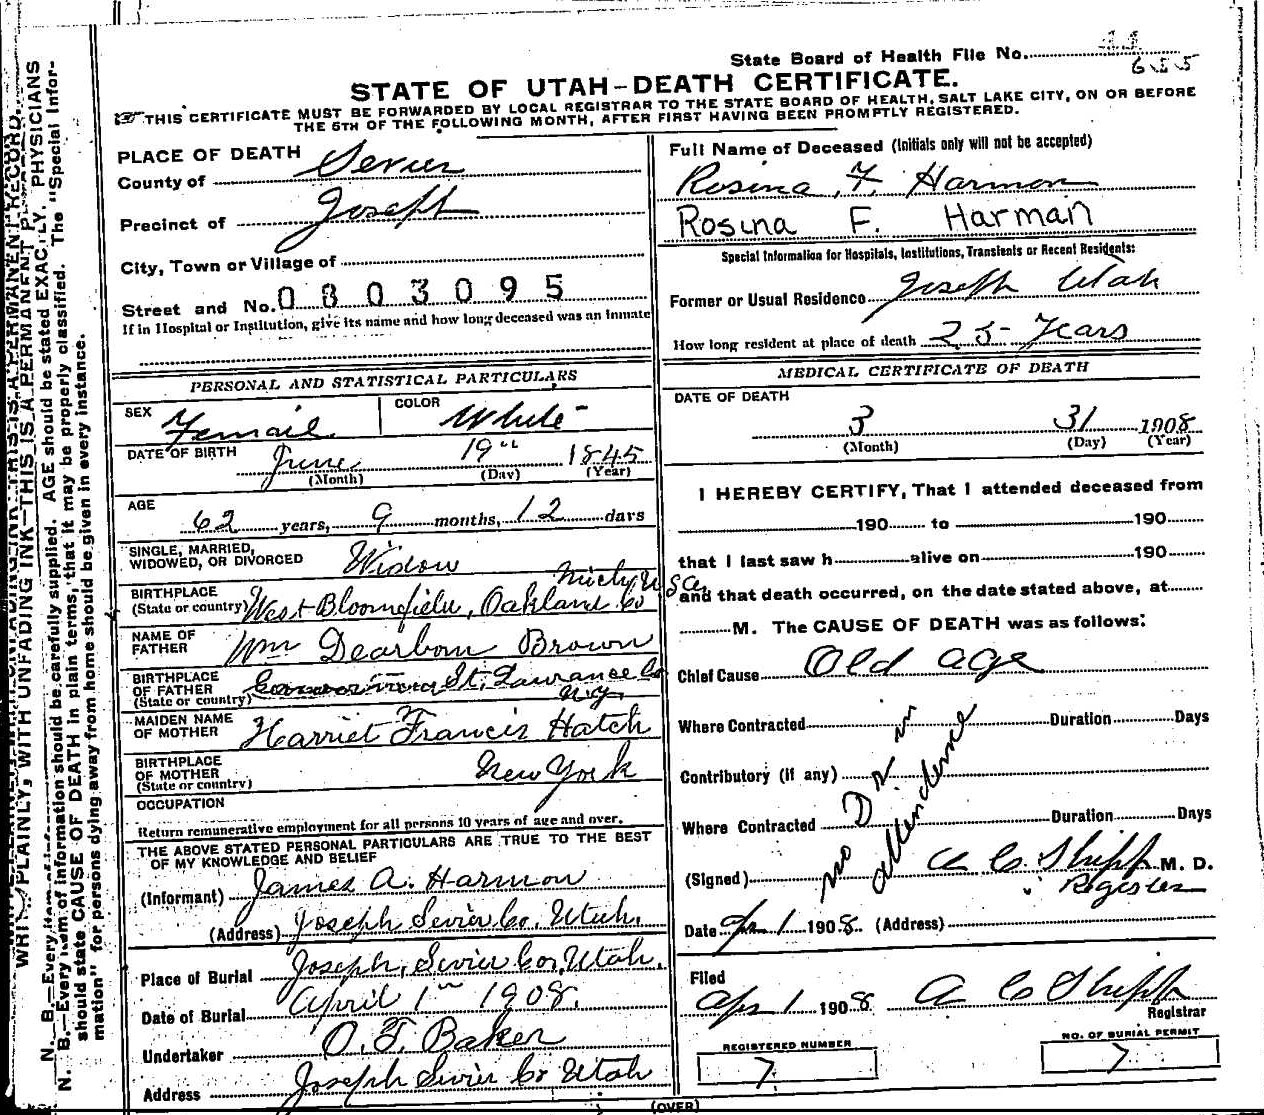 State Board of Health File No.
655
STATE OF UTAH-DEATH CERTIFICATE.
THIS CERTIFICATE MUST BE FORWARDED BY LOCAL REGISTRAR TO THE STATE BOARD OF HEALTH, SALT LAKE CITY, ON OR BEFORE
THE 5TH OF THE FOLLOWING MONTH, AFTER FIRST HAVING BEEN PROMPTLY REGISTERED.
PLACE OF DEATH
County of Sevier
Precinct of Joseph
City, Town or Village of
Street and No. 0803095
If in Hospital or Institution, give its name and how long deceased was an inmate
Full Name of Deceased (Initials only will not be accepted)
Rosina F. Harmon
Rosina F. Harman
Special Information for Hospitals, Institutions, Transients or Recent Residents:
Former or Usual Residence Joseph Utah
How long resident at place of death 25 Years
PERSONAL AND STATISTICAL PARTICULARS
SEX Femail COLOR White
DATE OF BIRTH June 19th 1845
(Month) (Day) (Year)
AGE
62 years, 9 months, 12 days
SINGLE, MARRIED,
WIDOWED, OR DIVORCED Widow
BIRTHPLACE Mich, U.S.A.
(State or country) West Bloomfield, Oakland Co
NAME OF
FATHER Wm Dearborn Brown
BIRTHPLACE
OF FATHER St. Lawrance Co
(State or country) N.Y.
MAIDEN NAME
OF MOTHER Harriet Francis Hatch
BIRTHPLACE
OF MOTHER New York
(State or country)
OCCUPATION
Return remunerative employment for all persons 10 years of age and over.
THE ABOVE STATED PERSONAL PARTICULARS ARE TRUE TO THE BEST
OF MY KNOWLEDGE AND BELIEF
(Informant) James A. Harmon
(Address) Joseph Sevier Co. Utah.
Place of Burial Joseph, Sevier Co, Utah.
Date of Burial April 1st 1908.
Undertaker O. F. Baker
Address Joseph Sevier Co Utah
MEDICAL CERTIFICATE OF DEATH
DATE OF DEATH
3 31 1908
(Month) (Day) (Year)
I HEREBY CERTIFY, That I attended deceased from
190 to 190
that I last saw h alive on 190
and that death occurred, on the date stated above, at
M. The CAUSE OF DEATH was as follows:
Chief Cause Old age
Where Contracted Duration Days
Contributory (if any)
Where Contracted Duration Days
no Dr in
attendence
(Signed) A C Shipp M. D.
Register
Date Apr 1 1908. (Address)
Filed
Apr 1 1908 A C Shipp
Registrar
REGISTERED NUMBER
7
NO. OF BURIAL PERMIT
7
(OVER)
WRITE PLAINLY, WITH UNFADING INK-THIS IS A PERMANENT RECORD.
N. B.-Every item of information should be carefully supplied. AGE should be stated EXACTLY. PHYSICIANS
should state CAUSE OF DEATH in plain terms, that it may be properly classified. The "Special Infor-
mation" for persons dying away from home should be given in every instance.